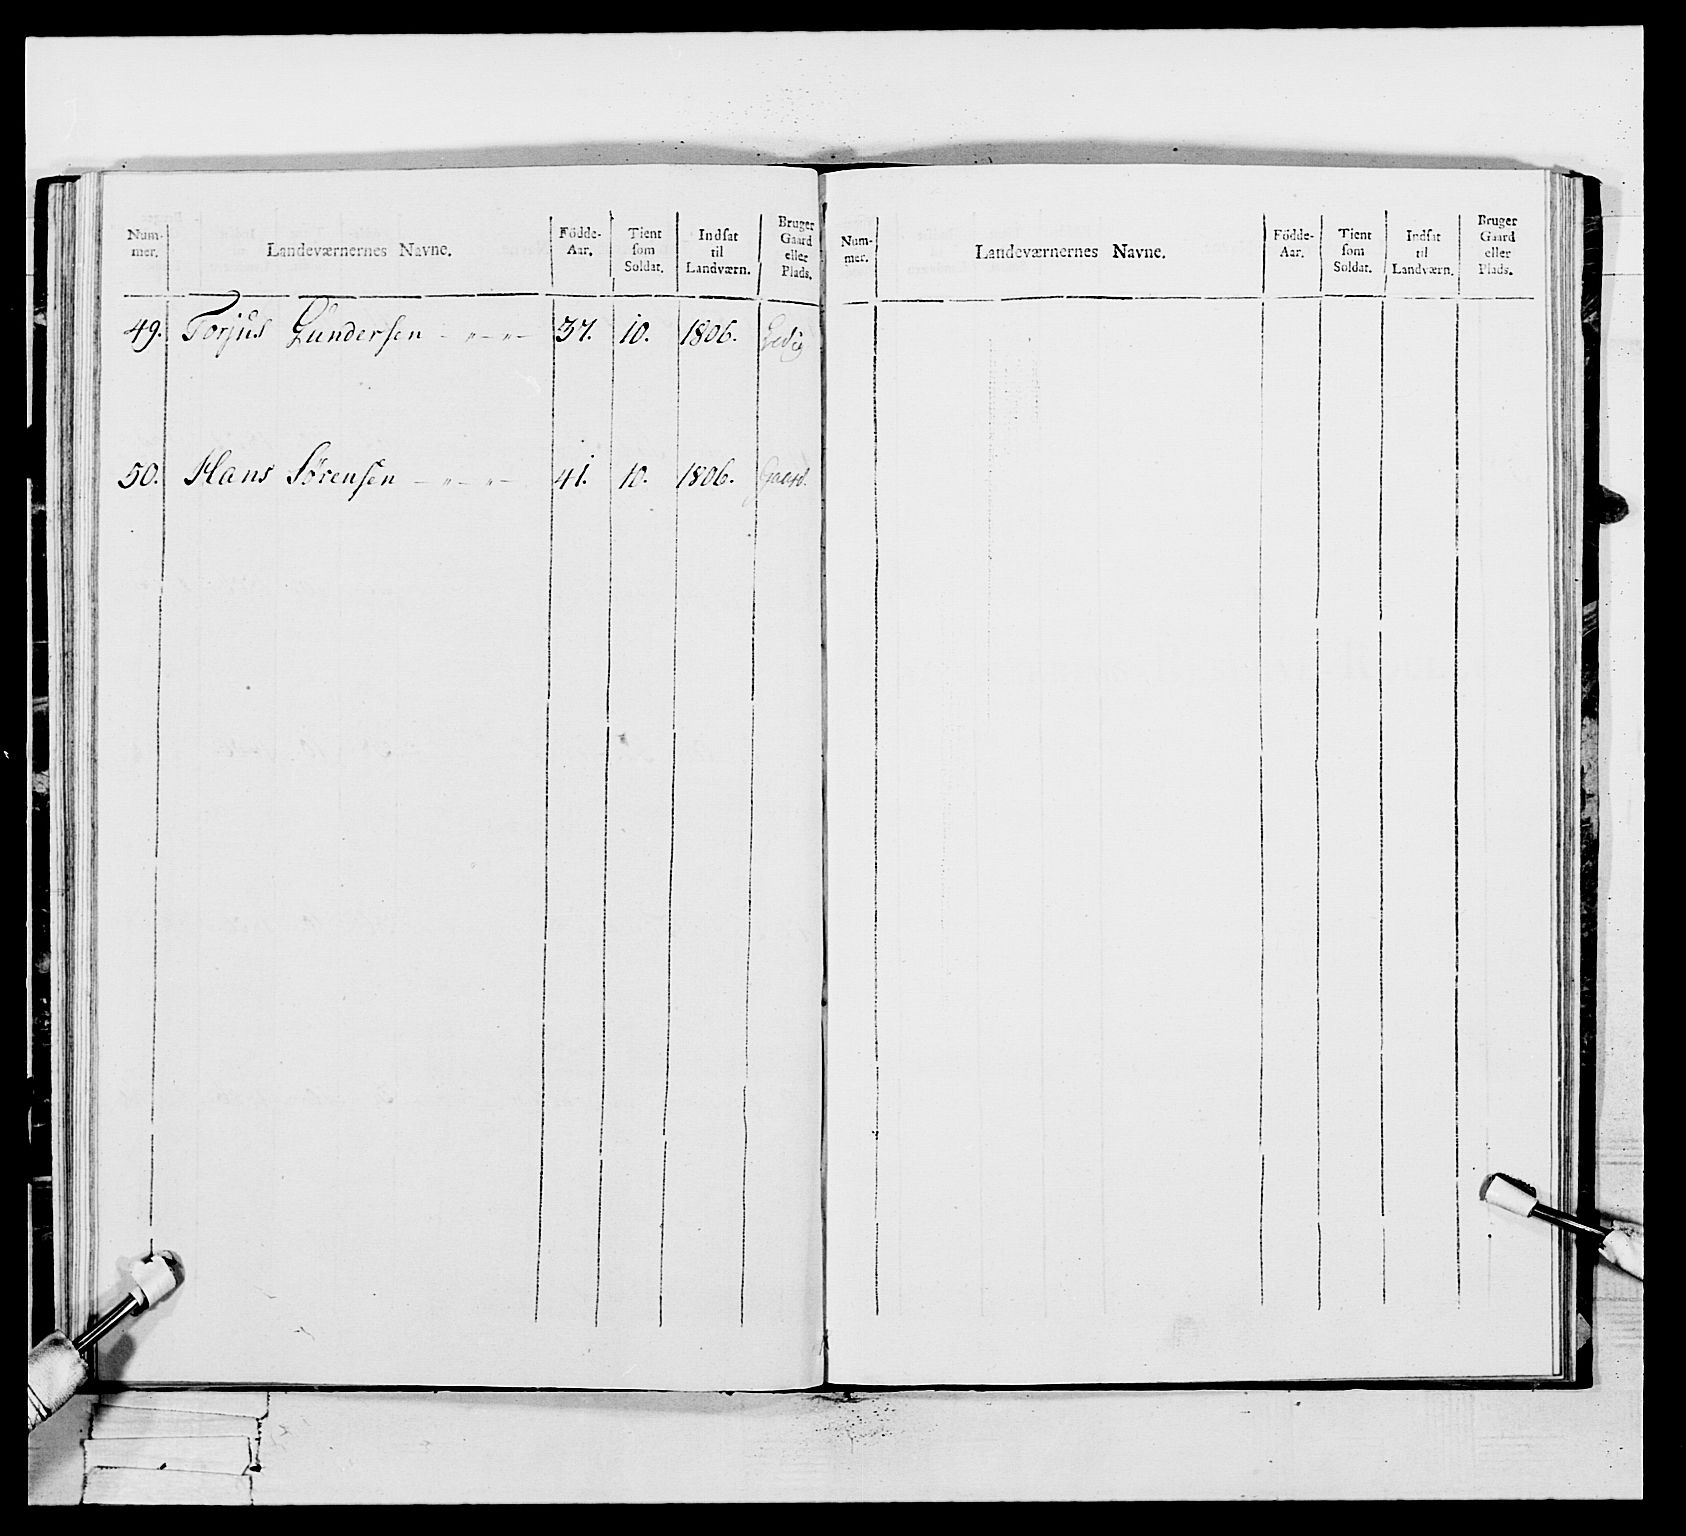 Num-
mer.
Landeværnernes Navne.
Födde-
Aar.
Tient
som
Soldat.
Indsat
til
Landværn.
Bruger
Gaard
eller
Plads.
49. Torjus Gundersen - „ - „ - 37. 10. 1806. Ledig
50. Hans Sörensen - „ - „ - 41. 10. 1806. Gaard.
Num-
mer.
Landeværnernes Navne.
Födde-
Aar.
Tient
som
Soldat.
Indsat
til
Landværn.
Bruger
Gaard
eller
Plads.